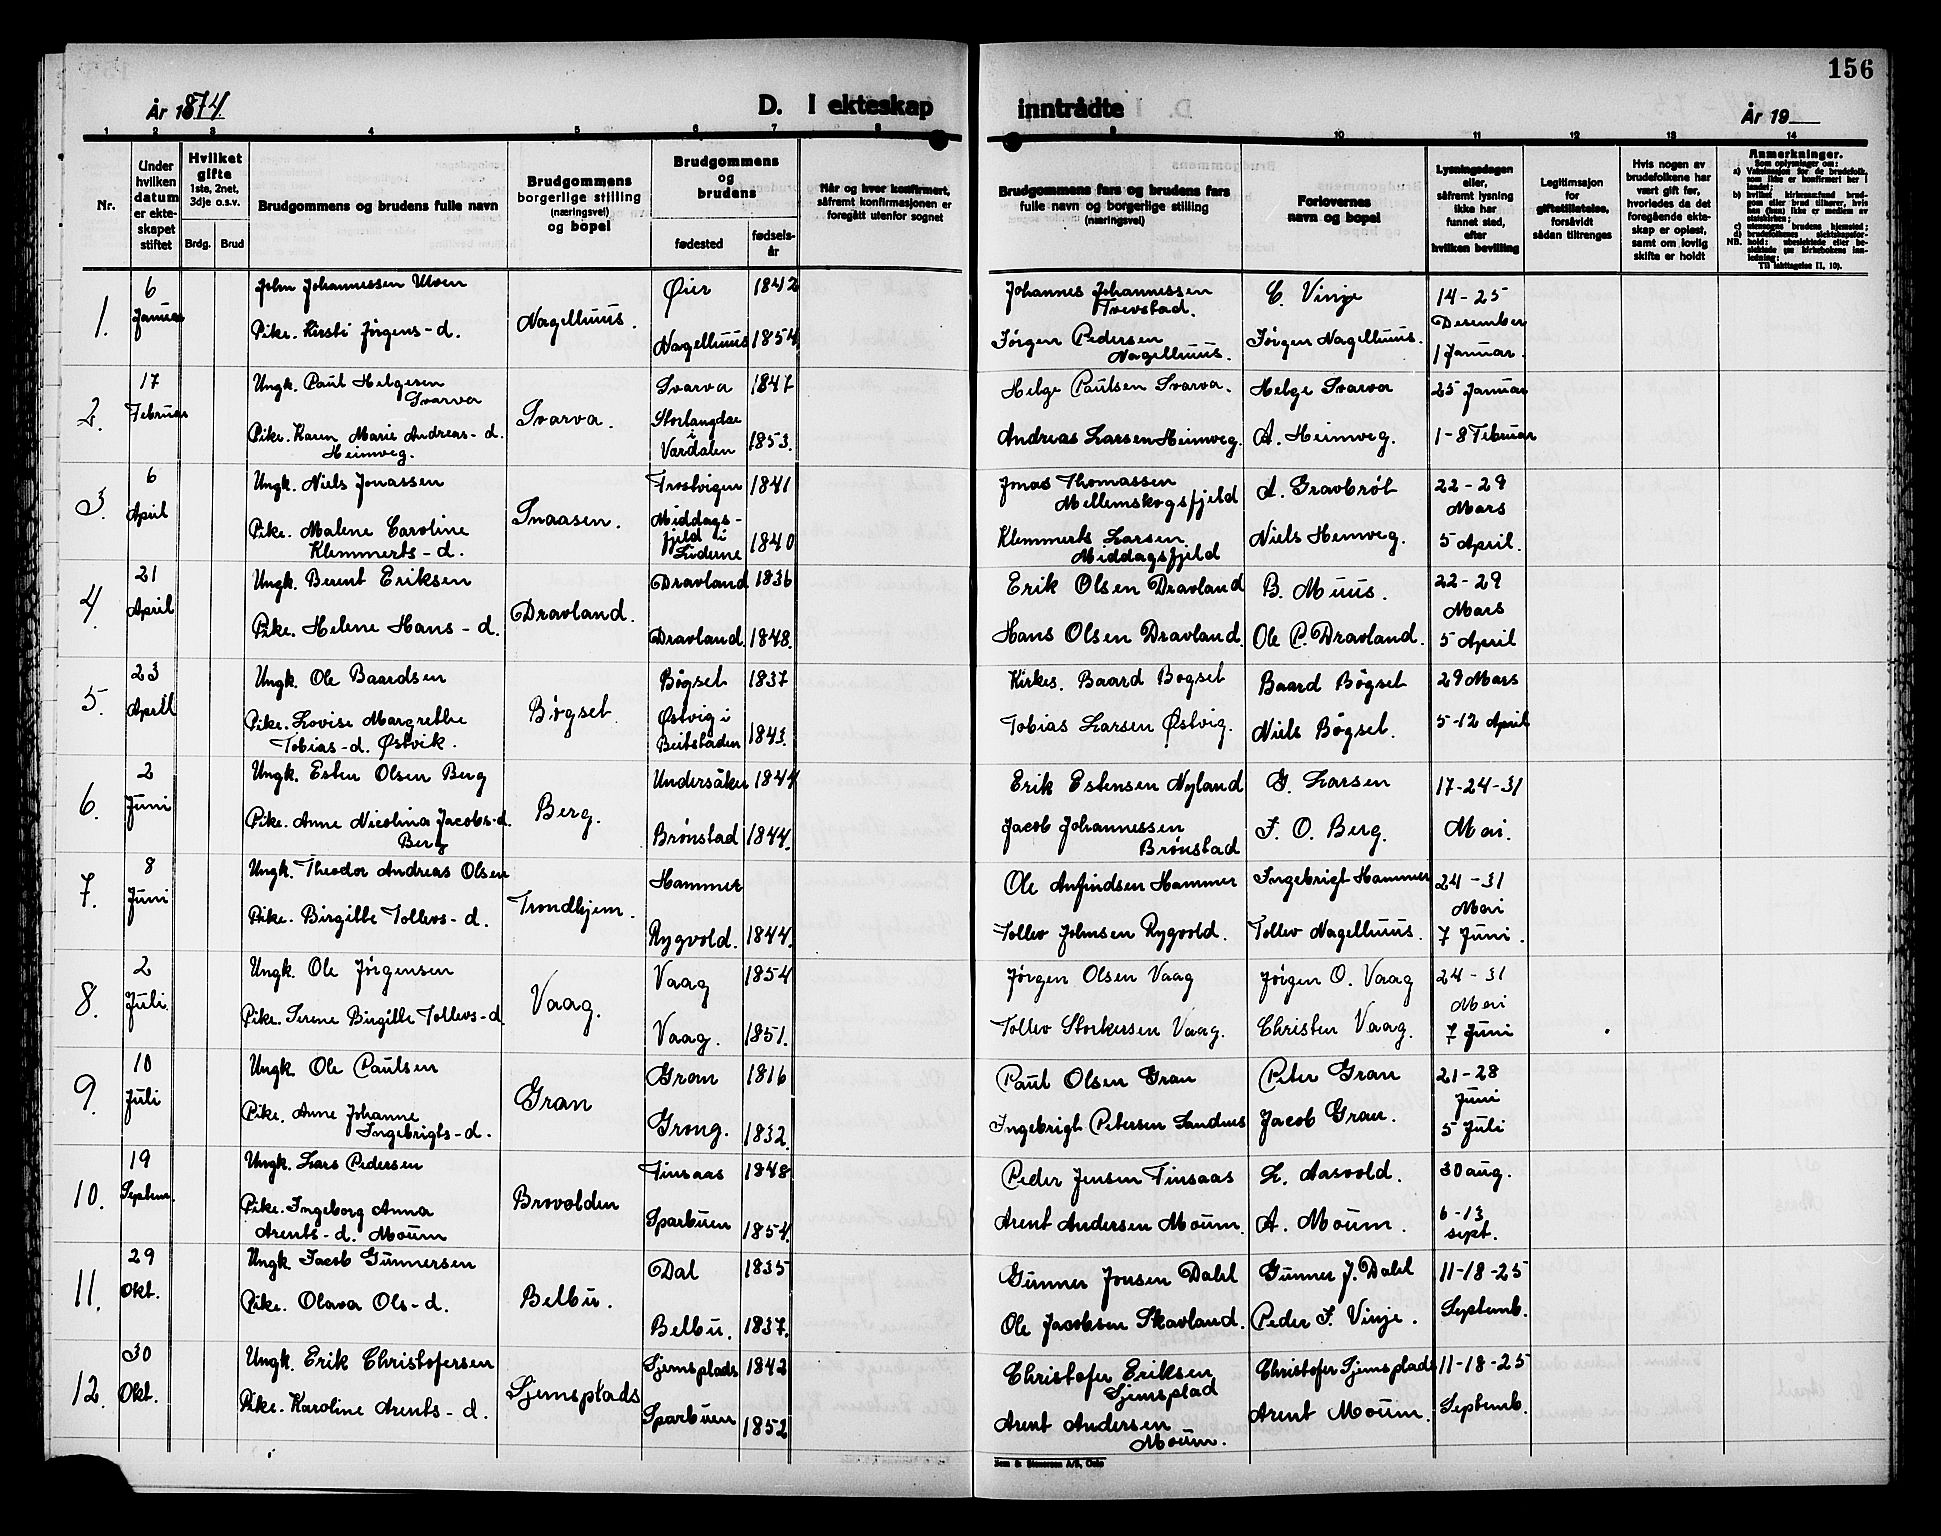 156
År 1874.
D. I ekteskap inntrådte
År 19
1 2 3 4 5 6 7 8 9 10 11 12 13 14
Nr.
Under hvilken datum er ekteskapet stiftet
Hvilket gifte 1ste, 2net, 3dje o.s.v.
Brdg. Brud
Brudgommens og brudens fulle navn
Brudgommens borgerlige stilling (næringsvei) og bopel
Brudgommens og brudens
fødested
fødselsår
Når og hvor konfirmert, såfremt konfirmasjonen er foregått utenfor sognet
Brudgommens fars og brudens fars fulle navn og borgerlige stilling (næringsvei)
Forlovernes navn og bopel
Lysningsdagen eller, såfremt lysning ikke har funnet sted, efter hvilken bevilling
Legitimasjon for giftetilletelse, forsåvidt sådan tiltrenges
Hvis nogen av brudefolkene har vært gift før, hvorledes da det foregående ekteskap er opløst, samt om lovlig skifte er holdt
Anmerkninger.
Som oplysninger om:
1. 6 Januar John Johannessen Ulven Nagelhuus. Øier 1842 Johannes Johannessen Trevstad. C. Vinje 14-25 Desember
Pike. Kirsti Jørgens-d. Nagelhuus 1854 Jørgen Pedersen Nagelhuus. Jørgen Nagelhuus. 1 Januar.
2. 17 Februar Ungk. Paul Helgesen Svarva Svarva. Svarva 1847 Helge Paulsen Svarva. Helge Svarva 25 Januar
Pike. Karen Marie Andreas-d. Heimveg. Storlangdae i Værdalen 1853. Andreas Larsen Heimveg. A. Heimveg. 1-8 Februar
3. 6 April Ungk. Niels Jonassen Snaasen. Frostvigen 1841 Jonas Thomassen Mellemskogsfjeld A. Gravbrøt 22-29 Mars
Pike. Malene Caroline Klemmerts-d. Middagsfjeld i Liderne 1840 Klemmerts Larsen Middagsfjeld Niels Hemveg. 5 April.
4. 21 April Ungk. Berent Eriksen Dravland. Dravland 1836 Erik Olsen Dravland B. Muus. 22-29 Mars
Pike. Helene Hans-d. Dravland. 1848. Hans Olsen Dravland. Ole P. Dravland. 5 April
5. 23 April Ungk. Ole Baardsen Bøgset. Bøgset 1837 Kirkes. Baard Bøgset Baard Bøgset 29 Mars
Pike. Lovise Margrethe Tobias-d. Østvik. Østvig i Beitstaden 1843. Tobias Larsen Østvig. Niels Bøgset. 5-12 April
6. 2 Juni Ungk. Esten Olsen Berg Berg. Undersåker 1844 Erik Estensen Nyland G. Larsen 17-24-31
Pike. Anne Nicolina Jacobs-d. Berg Brønstad 1844. Jacob Johannessen Brønstad J. O. Berg. Mai.
7. 8 Juni Ungk. Theodor Andreas Olsen Trondhjem. Hammer Ole Anfindsen Hammer Ingebrigt Hammer 24-31 Mai
Pike. Birgitte Tollevs-d. Rygvold. 1844. Tollev Johnsen Rygvold. Tollev Nagelhuus. 7 Juni.
8. 2 Juli. Ungk. Ole Jørgensen Vaag. Vaag 1854 Jørgen Olsen Vaag Jørgen O. Vaag 24-31 Mai
Pike. Serene Birgitte Tollevs-d. Vaag. 1851. Tollev Storkersen Vaag. Christen Vaag. 7 Juni
9. 10 Juli Ungk. Ole Paulsen Gran Gran 1816 Paul Olsen Gran Peter Gran 21-28 Juni
Pike. Anne Johanne Ingebrigts-d. Grong. 1832. Ingebrigt Petersen Sandnes Jacob Gran. 5 Juli
10. 19 Septem. Ungk. Lars Pedersen Brovolden Finsaas 1848 Peder Jensen Finsaas L. Aasvold. 30 aug.
Pike. Ingeborg Anna Arents-d. Moum Sparbuen 1854. Arent Andersen Moum. A. Moum. 6-13 sept.
11. 29 Okt. Ungk. Jacob Gunnersen Belbu. Dal 1835 Gunner Jonsen Dahl Gunner J. Dahl 11-18-25
Pike. Olava Ols-d. Belbu. 1837. Ole Jacobsen Skavland. Peder J. Vinje. Septemb.
12. 30 Okt. Ungk. Erik Christofersen Sjemsplads Sjemsplads 1842 Christofer Eriksen Sjemsplad Christofer Sjemsplads 11-18-25
Pike. Karoline Arents-d. Sparbuen 1852 Arent Andersen Moum. Arent Moum. Septemb.
Sem & Stenersen A/S, Oslo